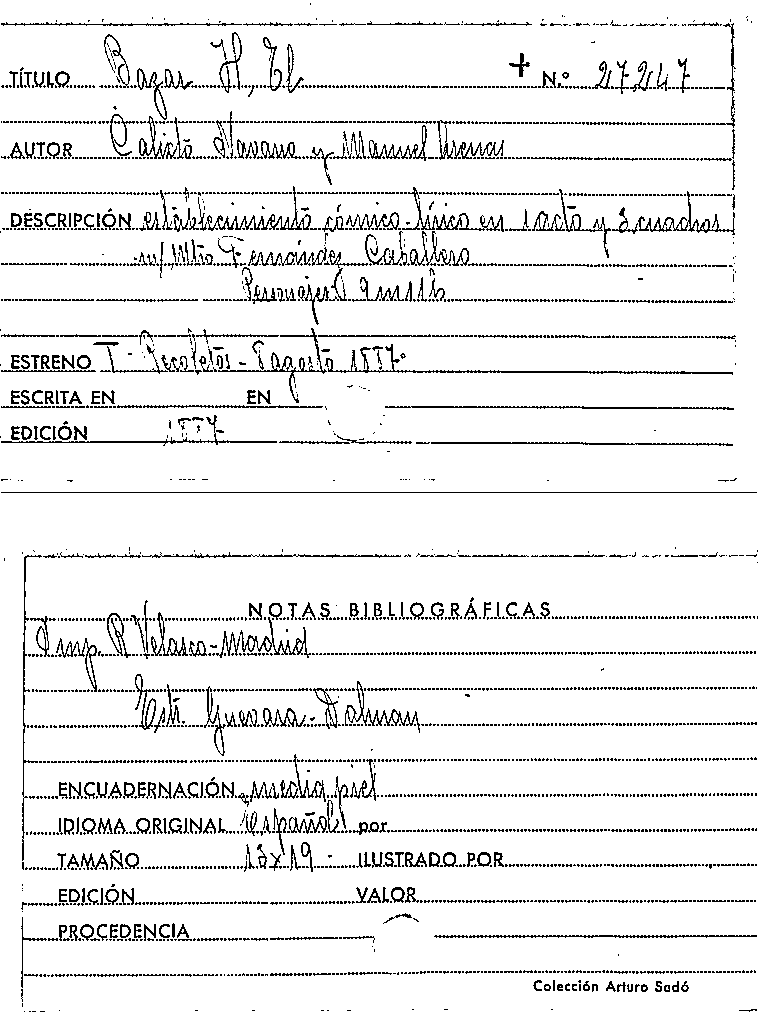 TÍTULO Bazar H, El + N.º 27.247
AUTOR Calixto Navarro y Manuel Arenas
DESCRIPCIÓN establecimiento cómico-lírico en 1 acto y 3 cuadros
m/ Mtro Fernández Caballero
Personajes 9 m 11 h
ESTRENO T- Recoletos - 8 agosto 1887.
ESCRITA EN EN
EDICIÓN 1887
NOTAS BIBLIOGRÁFICAS
Imp. R Velasco - Madrid
Estr. Guevara -
ENCUADERNACIÓN media piel
IDIOMA ORIGINAL Español por
TAMAÑO 13x19 - ILUSTRADO POR
EDICIÓN VALOR
PROCEDENCIA
Colección Arturo Sedó